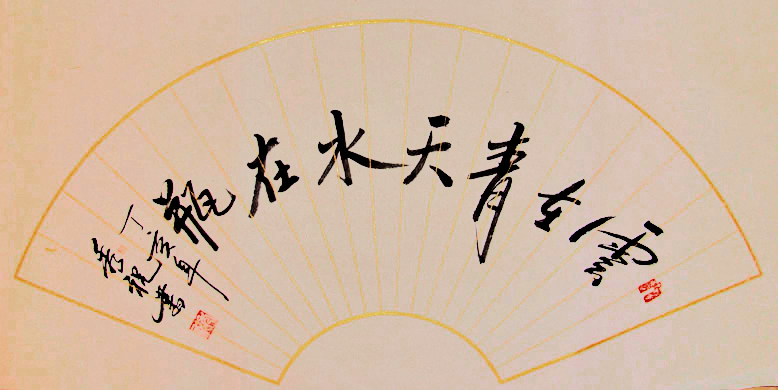 雲在青天水在瓶
丁亥年
書